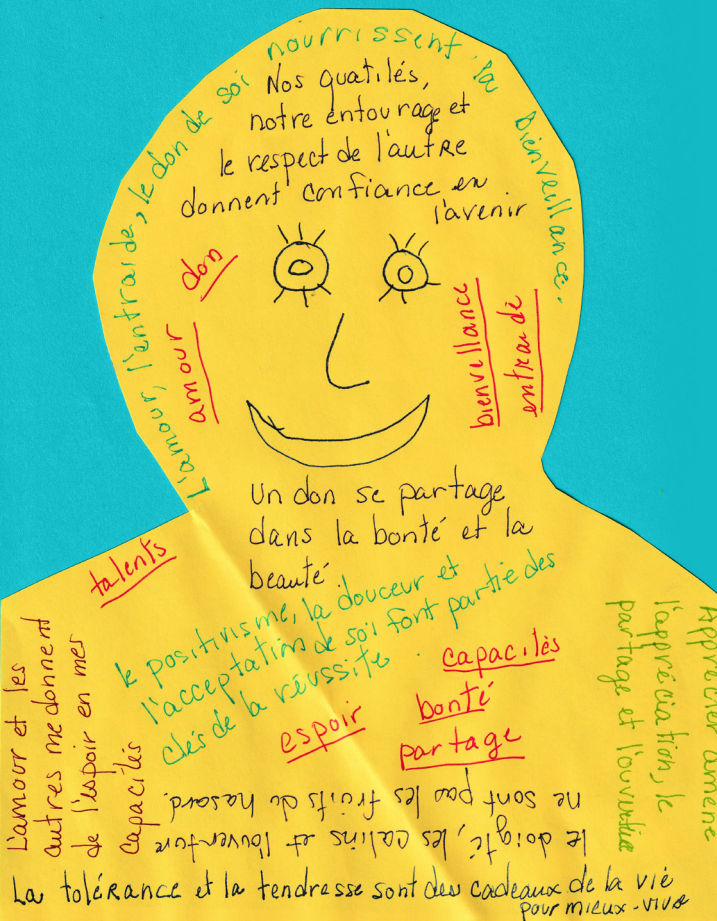 L'amour, l'entraide, le don de soi nourrissent la bienveillance.
Nos quatilés,
notre entourage et
le respect de l'autre
donnent confiance en
l'avenir
don
amour
bienveillance
entraide
Un don se partage
dans la bonté et la
beauté.
talents
le positivisme, la douceur et
l'acceptation de soi font partie des
clés de la réussite.
capacités
bonté
partage
espoir
L'amour et les
autres me donnent
de l'espoir en mes
capacités
Apprécier amène
l'appréciation, le
partage et l'ouverture
le doigté, les calins et l'ouverture
ne sont pas les fruits du hasard.
La tolérance et la tendresse sont des cadeaux de la vie
pour mieux-vivre